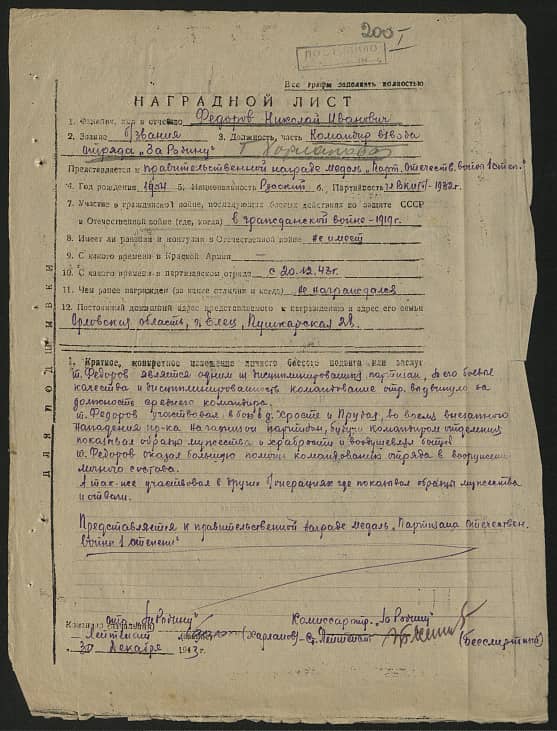 200-I
ПОСТУПИЛО
Все графы заполнять полностью
НАГРАДНОЙ ЛИСТ
1. Фамилия, имя и отчество Федоров Николай Иванович
2. Звание б/звания 3. Должность, часть Командир взвода
отряда "За Родину"
Представляется к правительственной награде медаль "Парт. Отечеств. войны 1 степ."
4. Год рождения 1904 5. Национальность Русский 6. Партийность 1932г.
7. Участие в гражданской войне, последующих боевых действиях по защите СССР
и Отечественной войне (где, когда) в гражданской войне – 1919г.
8. Имеет ли ранения и контузии в Отечественной войне не имеет
9. С какого времени в Красной Армии –
10. С какого времени в партизанском отряде с 20.12.43г.
11. Чем ранее награжден (за какие отличия и когда) не награждался
12. Постоянный домашний адрес представляемого к награждению и адрес его семьи
Орловская область, г. Елец, Пушкарская
ДЛЯ ПОДШИВКИ
1. Краткое, конкретное изложение личного боевого подвига или заслуг
т. Федоров является одним из дисциплинированных партизан, за его боевые
качества и дисциплинированность командование отр. выдвинуло на
должность среднего командира.
т. Федоров участвовал в бою в д. Хросте и Прудах, во время внезапного
нападения пр-ка на гарнизон партизан, будучи командиром отделения
показывал образцы мужества и храбрости и воодушевлял бойцов
т. Федоров оказал большую помощь командованию отряда в вооружении
личного состава.
А так-же участвовал в других операциях где показывал образцы мужества
и отваги.
Представляется к правительственной награде медаль "Партизана отечествен.
войны 1 степени"
Командир отр. "За Родину" Комиссар отр. "За Родину"
Лейтенант (Харламов) Ст. Лейтенант (Бессмертный)
"30" Декабря 1943г.